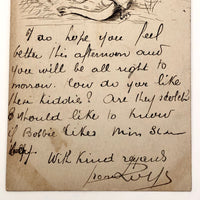 I do hope you feel
better this afternoon and
you will be all right to
morrow. How do you like
these kiddies? Are they sketch
I should like to know
if Bobbie likes Miss
With kind regards